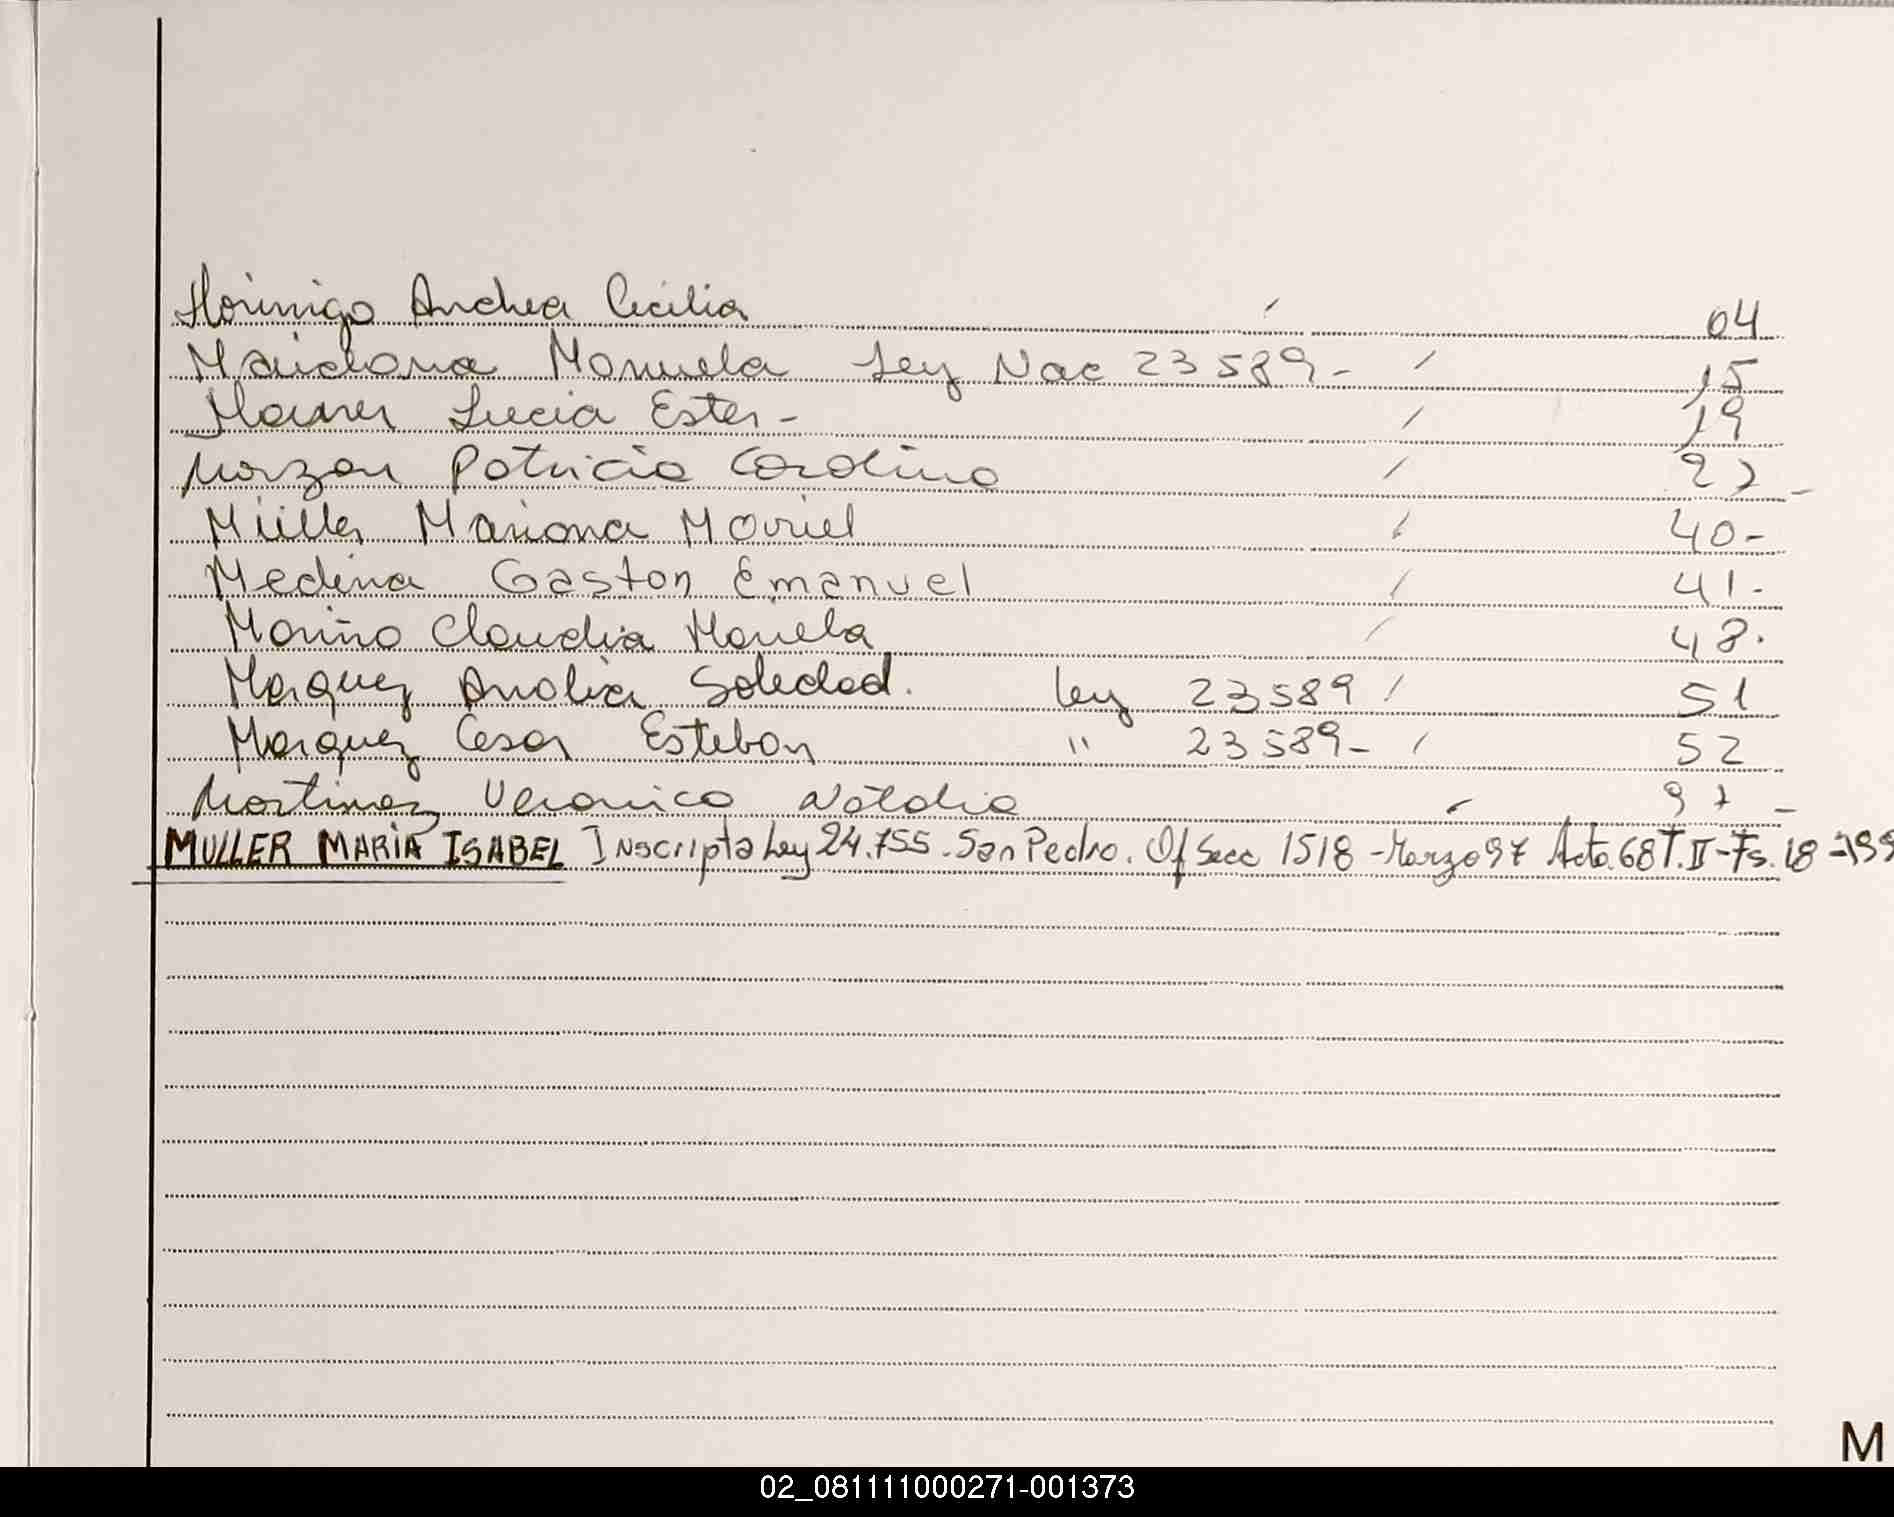 Morinigo Andrea Cecilia / 04
Maidana Manuela Ley Nac 23589- / 15
Lucia Ester - / 19
Patricia Carolina / 27 -
Müller Mariana Muriel / 40-
Medina Gaston Emanuel / 41-
Mariño Claudia Mariela / 48.
Marquez Analia Soledad. Ley 23589 / 51
Marquez Cesar Esteban " 23589- / 52
Martinez Veronica Natalia / 97 -
MULLER MARIA ISABEL Inscripta Ley 24.755. San Pedro. Of Secc 1518 - Marzo 97 Acta. 68 T. II - Fs. 18 = 199
M
02_081111000271-001373